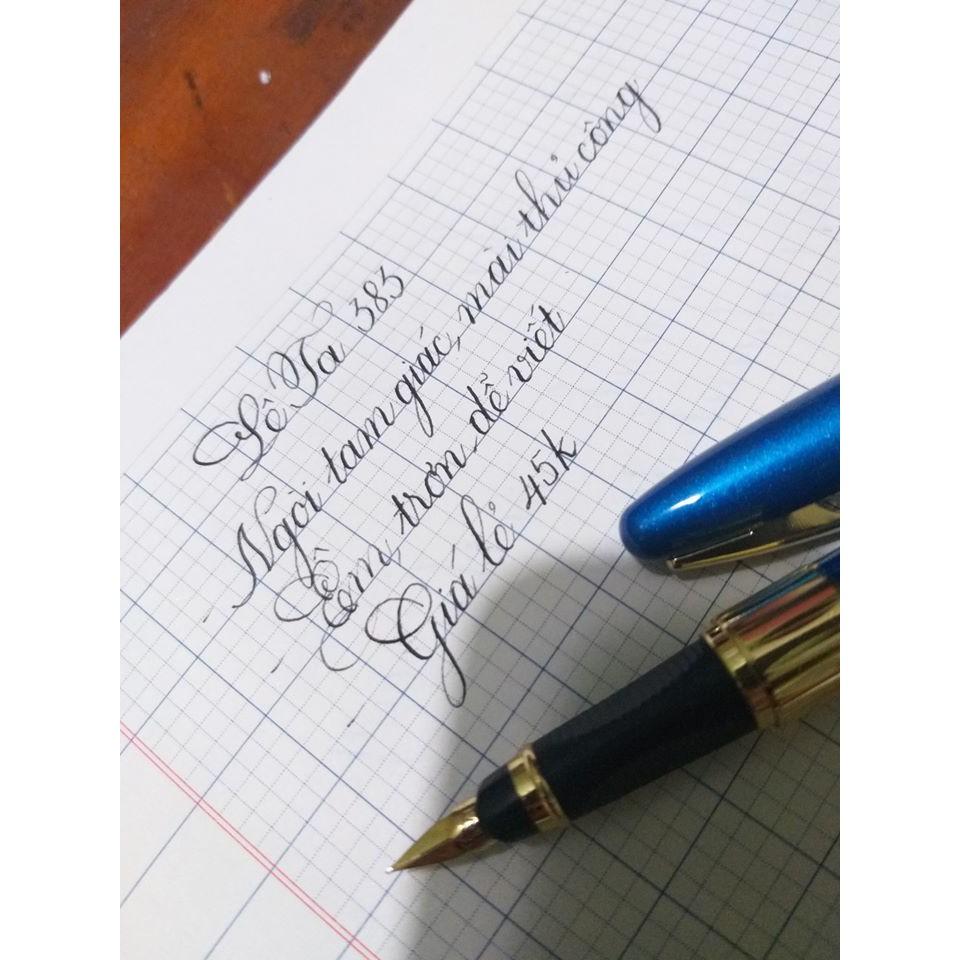 Lê Tả 383
- Ngòi tam giác, mài thủ công
- Êm trơn, dễ viết
- Giá lẻ 45k